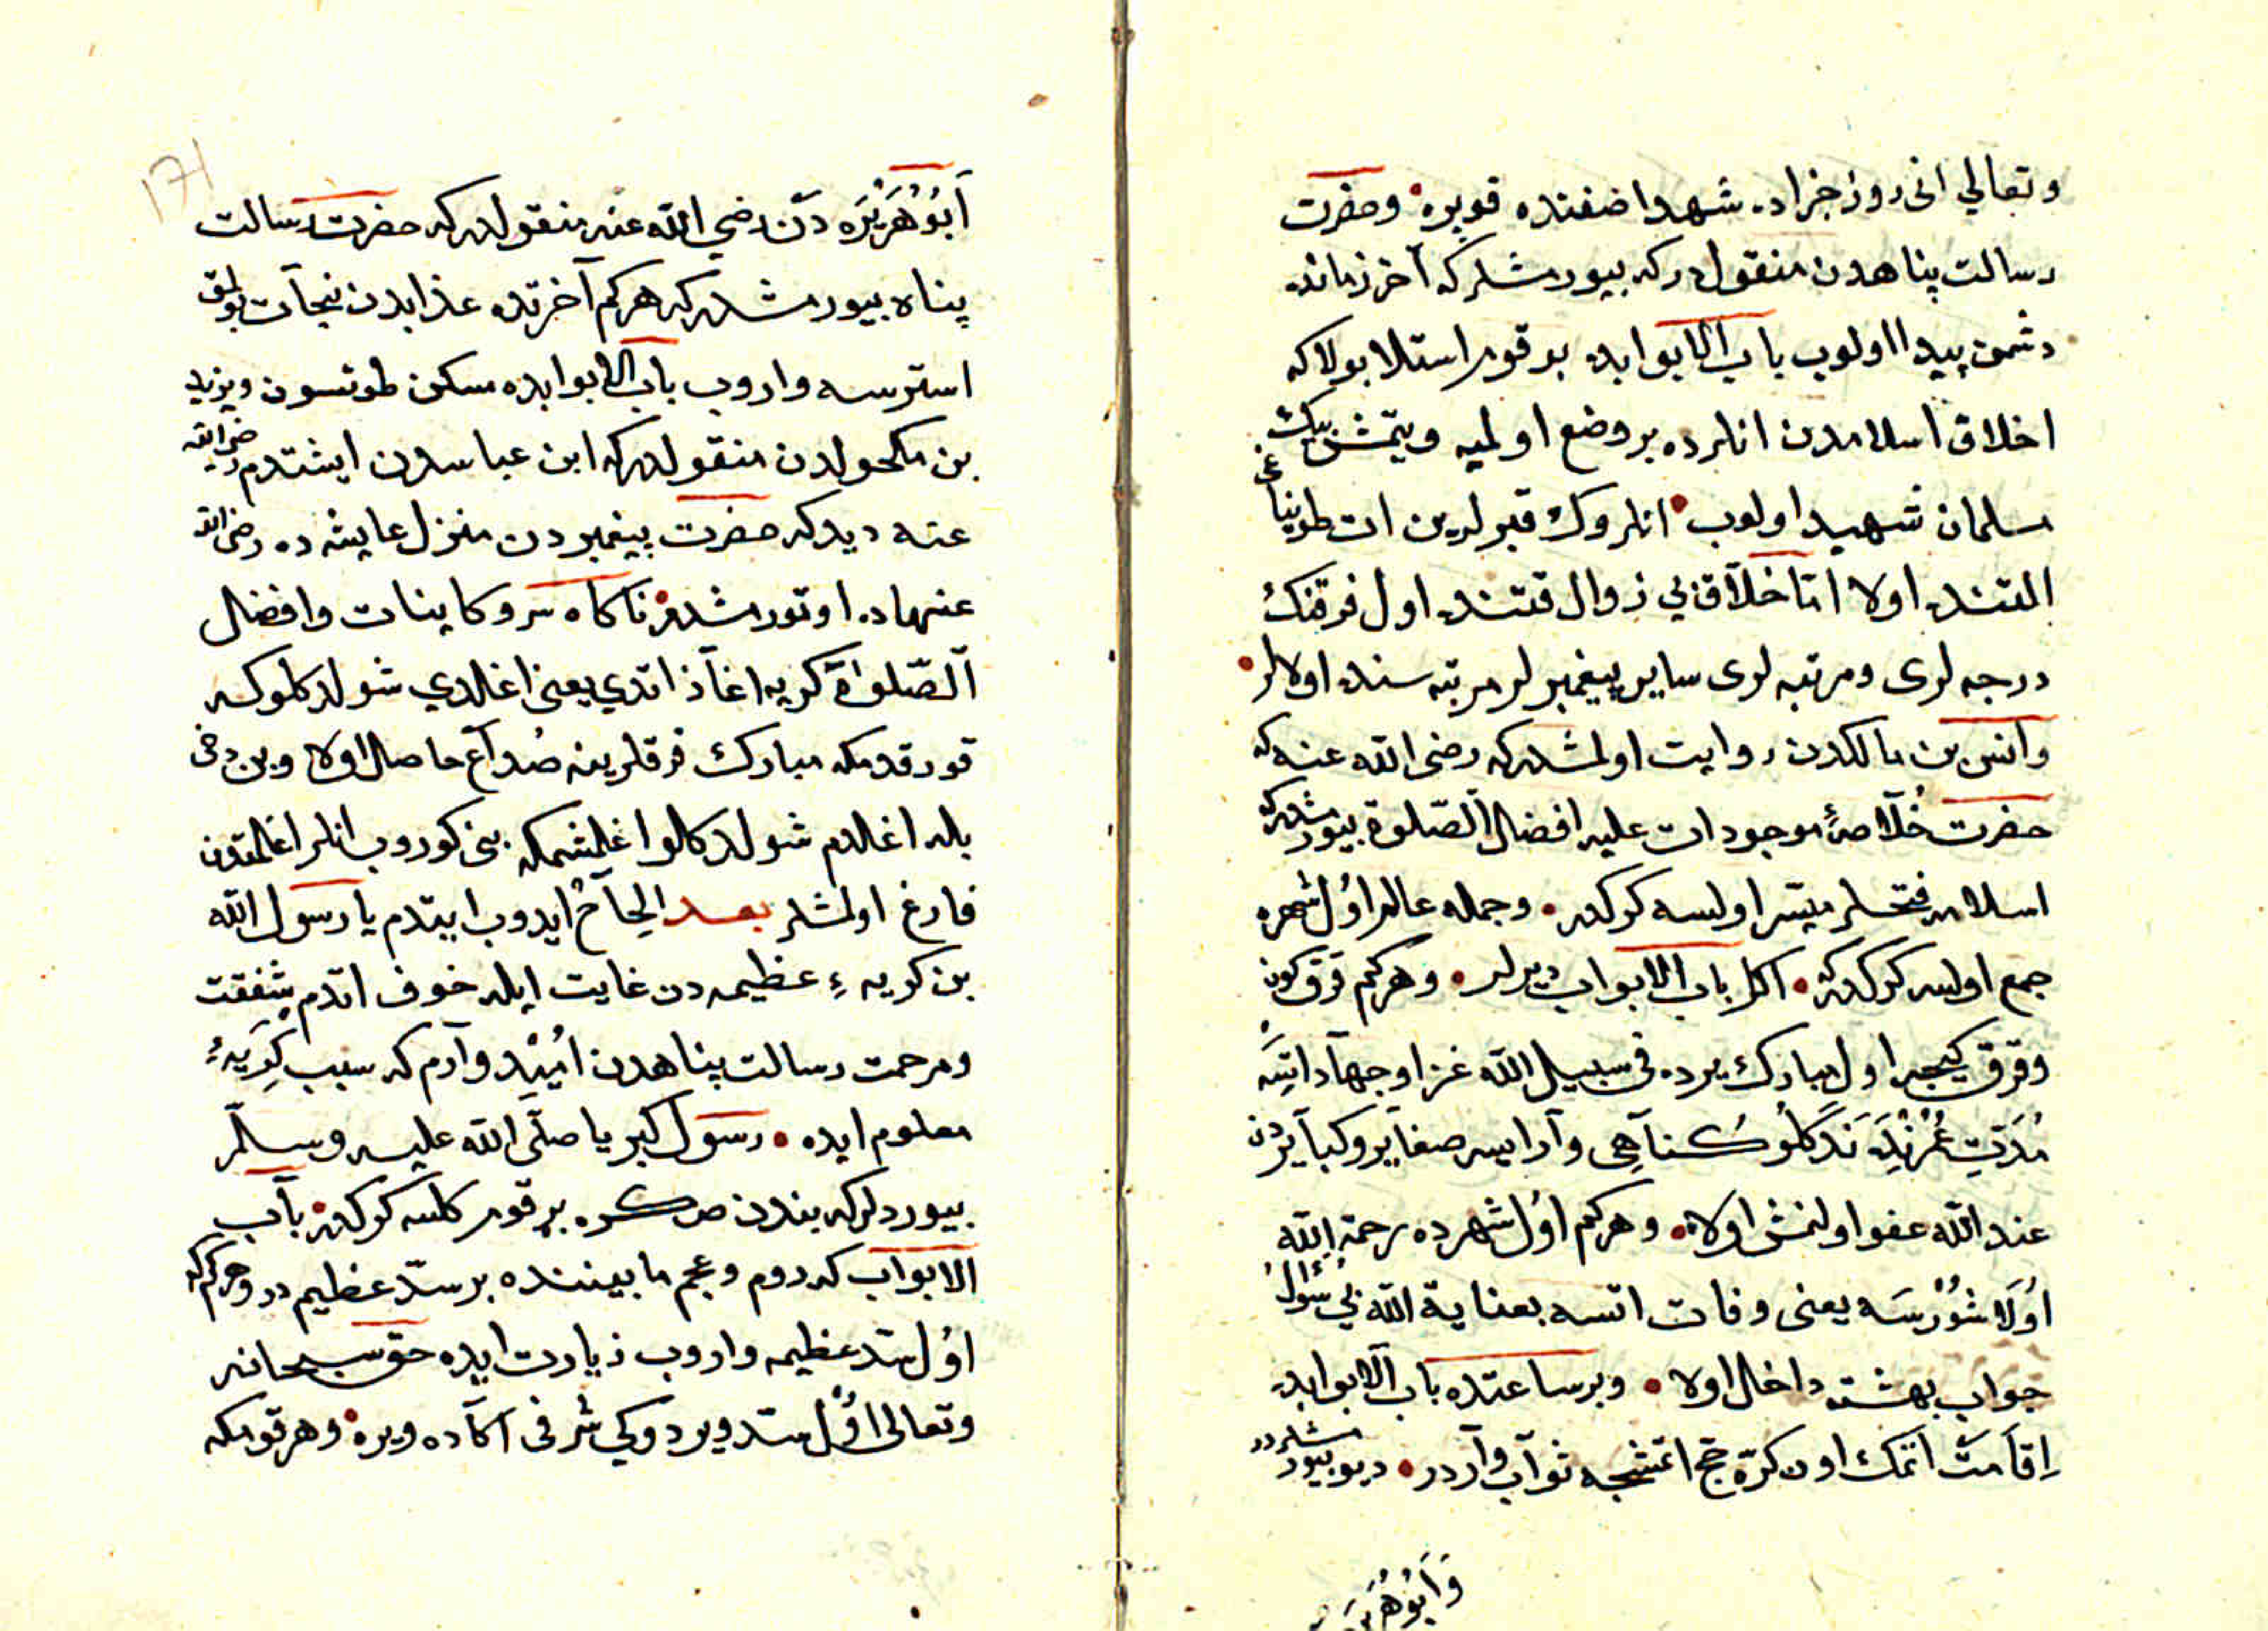 وتعالي انى روز جزاده شهدا ضفنده قويره وحضرت
رسالت پناهدن منقولدركه بيورمشلركه آخر زمانده
دشمن پيدا اولوب باب الابوابده بو قوم استلا بولا كه
اخلاق اسلامدن انلرده بر وضع اولميه ويتمش بيك
مسلمان شهيد اولوب انلروك قبولرين ات طوينا غى
التنده اولا اتا خلاق بي زوال قتنده اول فرقنك
درجه لرى ومرتبه لرى ساير پيغمبر لر مرتبه سنده اولالر
وانس بن مالكدن روايت اولمشدركه رضى الله عنه كه
حضرت خلاصهٔ موجودات عليه افضل الصلوة بيورمشدركه
اسلامه فتحلر ميسر اولسه كركدر وجمله عالم اول شهره
جمع اولسه كركدر كه اكا باب الابواب ديرلر وهركم قرق كون
وقرق كيجه اول مبارك يرده فى سبيل الله غزا وجهاد اتسه
مدت عمرنده نه دكلو كناهى وارايسه صغاير وكبايردن
عند الله عفو اولنمش اولا وهركم اول شهرده رحمة الله
اولاشورسه يعنى وفات اتسه بعناية الله بي سؤال
جواب بهشته داخل اولا وبر ساعتده باب الابوابده
اقامت اتمك اون كره حج اتمشجه ثواب واردر ديو بيورمشلردر
وابو هريره
171
ابو هريره دن رضي الله عنه منقولدركه حضرت رسالت
پناه بيورمشدركه هركم آخرتده عذابدن نجات بولمق
استرسه واروب باب الابوابده مسكن طوتسون ويزيد
بن مكحولدن منقولدركه ابن عباسدن ايشتدم رضى الله
عنه ديدكه حضرت پيغمبردن منزل عايشه ده رضى الله
عنهاده اوتورمشدى ناكاه سرو كاينات وافضل
الصلوات كريه اغاز اتدي يعنى اغلدي شولدكلوكه
قورقدمكه مبارك فرقلرينه صداع حاصل اولا وبن دخى
بله اغلدم شولدكلو اغلمشمكه بنى كوروب انلر اغلمقدن
فارغ اولمشلر بعد الحاح ايدوب ايتدم يا رسول الله
بن كريهٔ عظيمه دن غايت ايله خوف اتدم شفقت
ومرحمت رسالت پناهدن اميد وارم كه سبب كريهٔ
معلوم ايده رسول كبريا صلى الله عليه وسلم
بيورديلركه بندن صكره بر قوم كلسه كركدر باب
الابواب كه روم وعجم مابيننده بر سد عظيم در وهركم كه
اول سد عظيمه واروب زيارت ايده حق سبحانه
وتعالى اول سد ويردوكي شرفى اكا ده ويره وهر قومكه